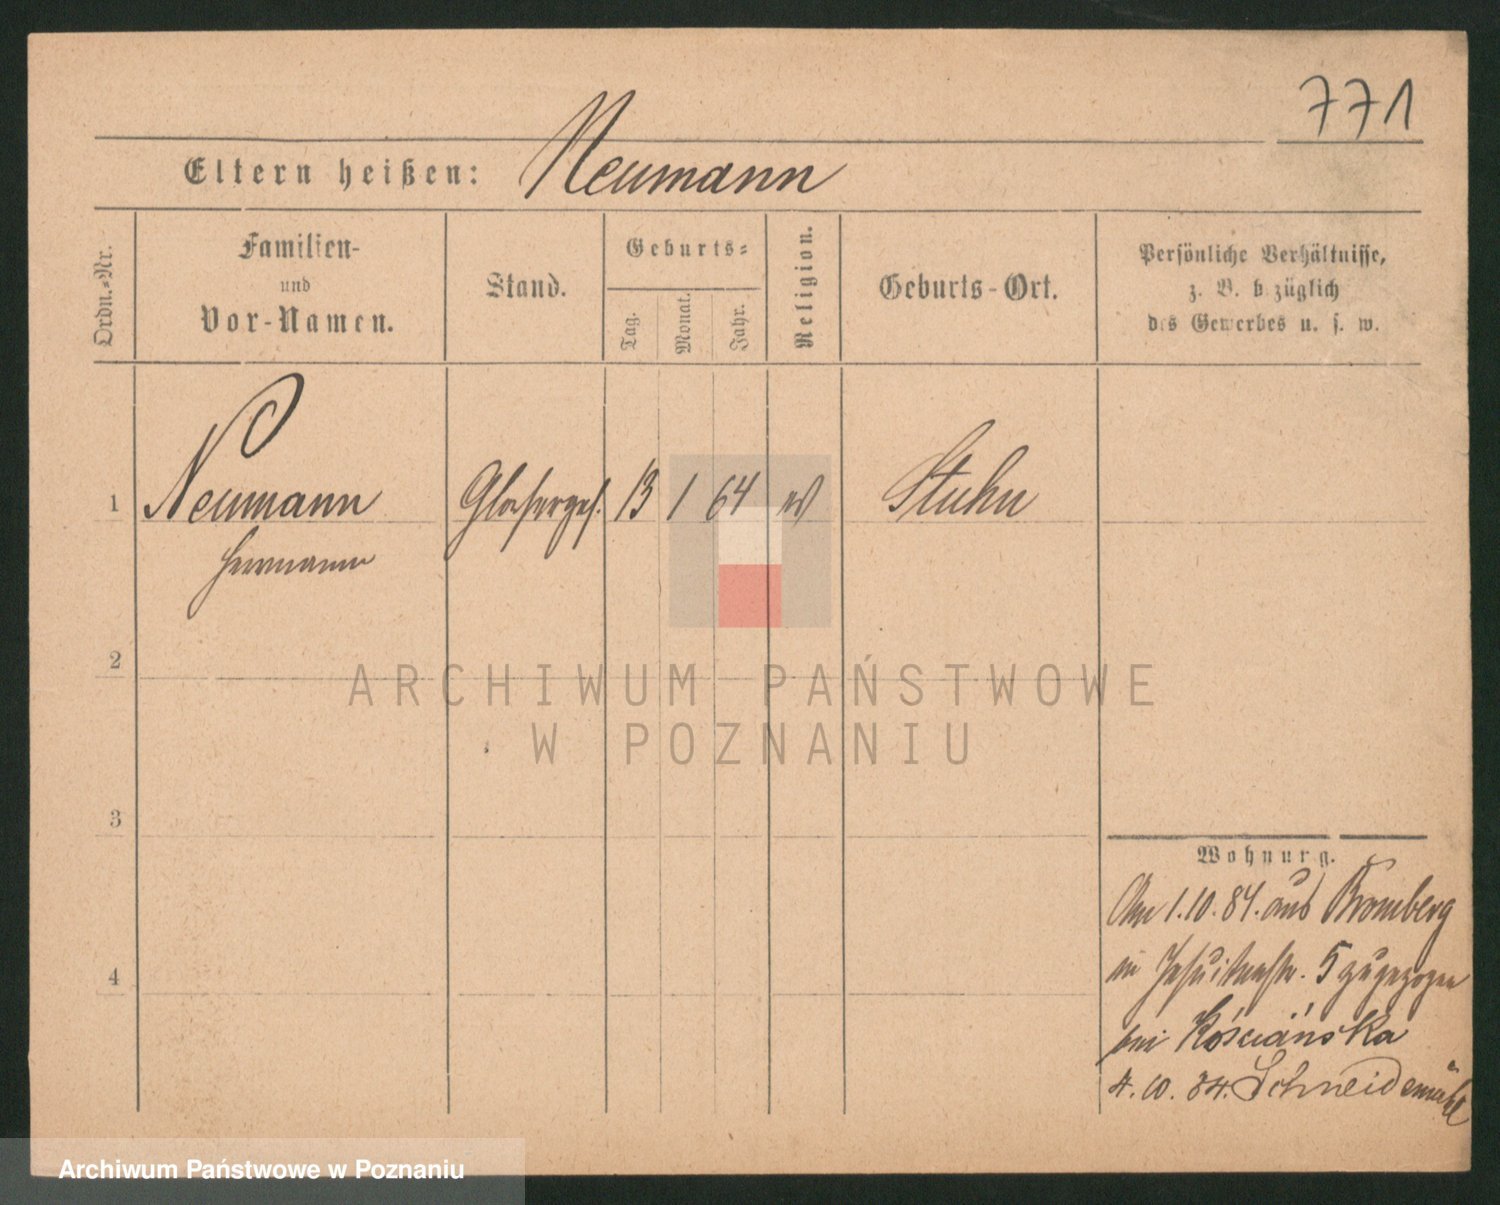 771
Eltern heißen: Neumann
Ordn.-Nr.
Familien-
und
Vor-Namen.
Stand.
Geburts-
Tag.
Monat.
Jahr.
Religion.
Geburts-Ort.
Persönliche Verhältnisse,
z. B. bezüglich
des Gewerbes u. s. w.
1 Neumann Glasergef. 13 1 64 ev Stuhm
Herrmann
2
3
4
ARCHIWUM PAŃSTWOWE
W POZNANIU
Wohnung.
Am 1.10.84. aus Bromberg
in Jesuitenstr. 5 zugezogen
bei Kościańska
4.10.84. Schneidemühl
Archiwum Państwowe w Poznaniu